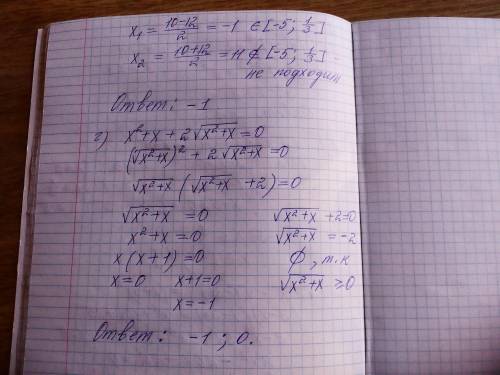 x₁ = (10-12)/2 = -1 ∈ [-5; 1/3]
x₂ = (10+12)/2 = 11 ∉ [-5; 1/3] -
не подходит
Ответ: -1
г) x²+x + 2√(x²+x) = 0
(√(x²+x))² + 2√(x²+x) = 0
√(x²+x) (√(x²+x) + 2) = 0
√(x²+x) = 0 √(x²+x) + 2=0
x²+x = 0 √(x²+x) = -2
x(x+1) = 0 ∅, т.к
x=0 x+1=0 √(x²+x) ≥ 0
x=-1
Ответ: -1; 0.